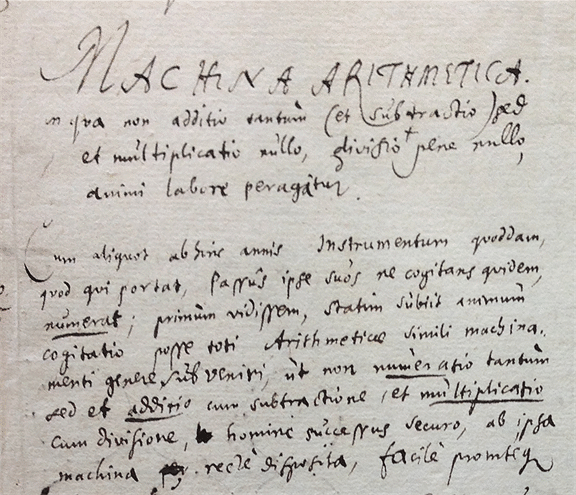 MACHINA ARITHMETICA.
in qva non additio tantum (et subtractio) sed
et multiplicatio nullo, divisio pene nullo,
animi labore peragatur.
Cum aliquot abhinc annis Instrumentum quoddam,
quod qui portat, Passus ipse suos ne cogitans quidem,
numerat; primum vidissem, statim subiit animum
cogitatio posse toti Arithmeticae simili machina-
menti genere subveniri, ut non numeratio tantum
sed et additio cum subtractione, et multiplicatio
cum divisione, homine successus securo, ab ipsa
machina recte disposita, facile